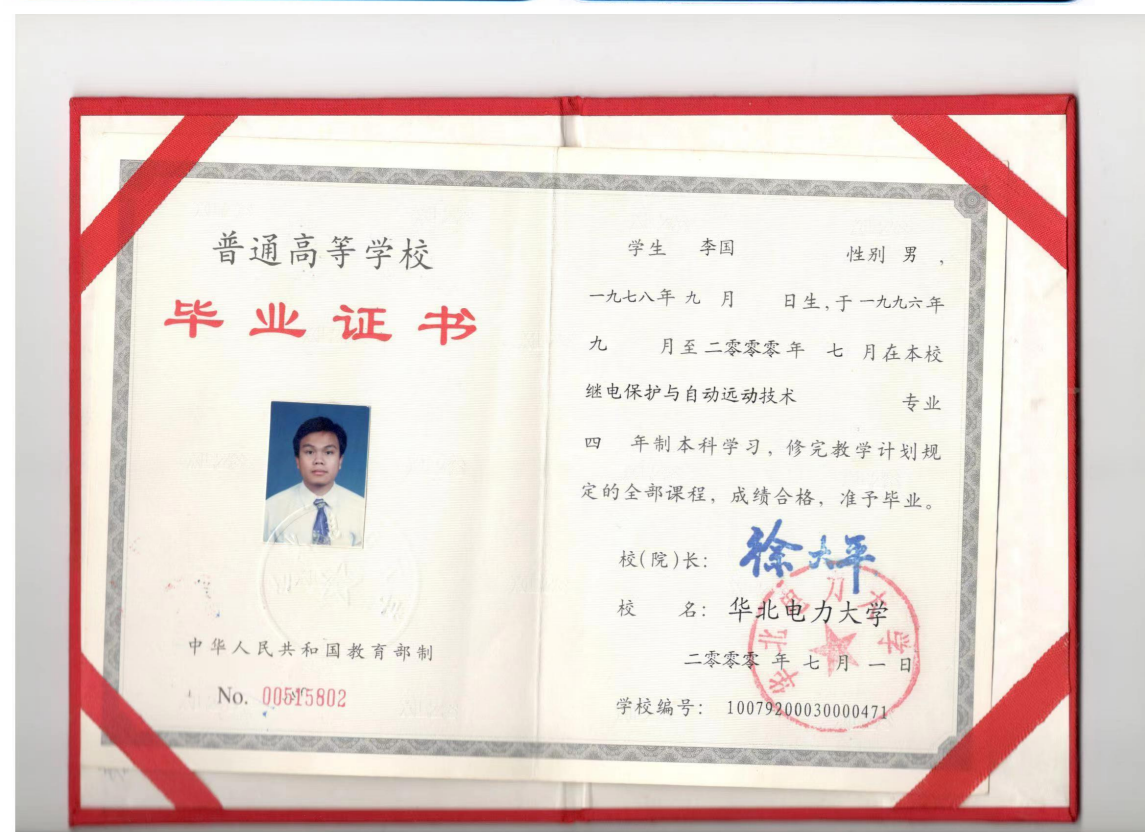 普通高等学校
毕业证书
中华人民共和国教育部制
No. 00515802
学生 李国 性别 男,
一九七八年 九 月 日生,于一九九六年
九 月至二零零零年 七 月在本校
继电保护与自动远动技术 专业
四 年制本科学习,修完教学计划规
定的全部课程,成绩合格,准予毕业。
校(院)长: 徐大平
校 名: 华北电力大学
二零零零 年 七 月 一 日
学校编号: 10079200030000471
华北电力大学